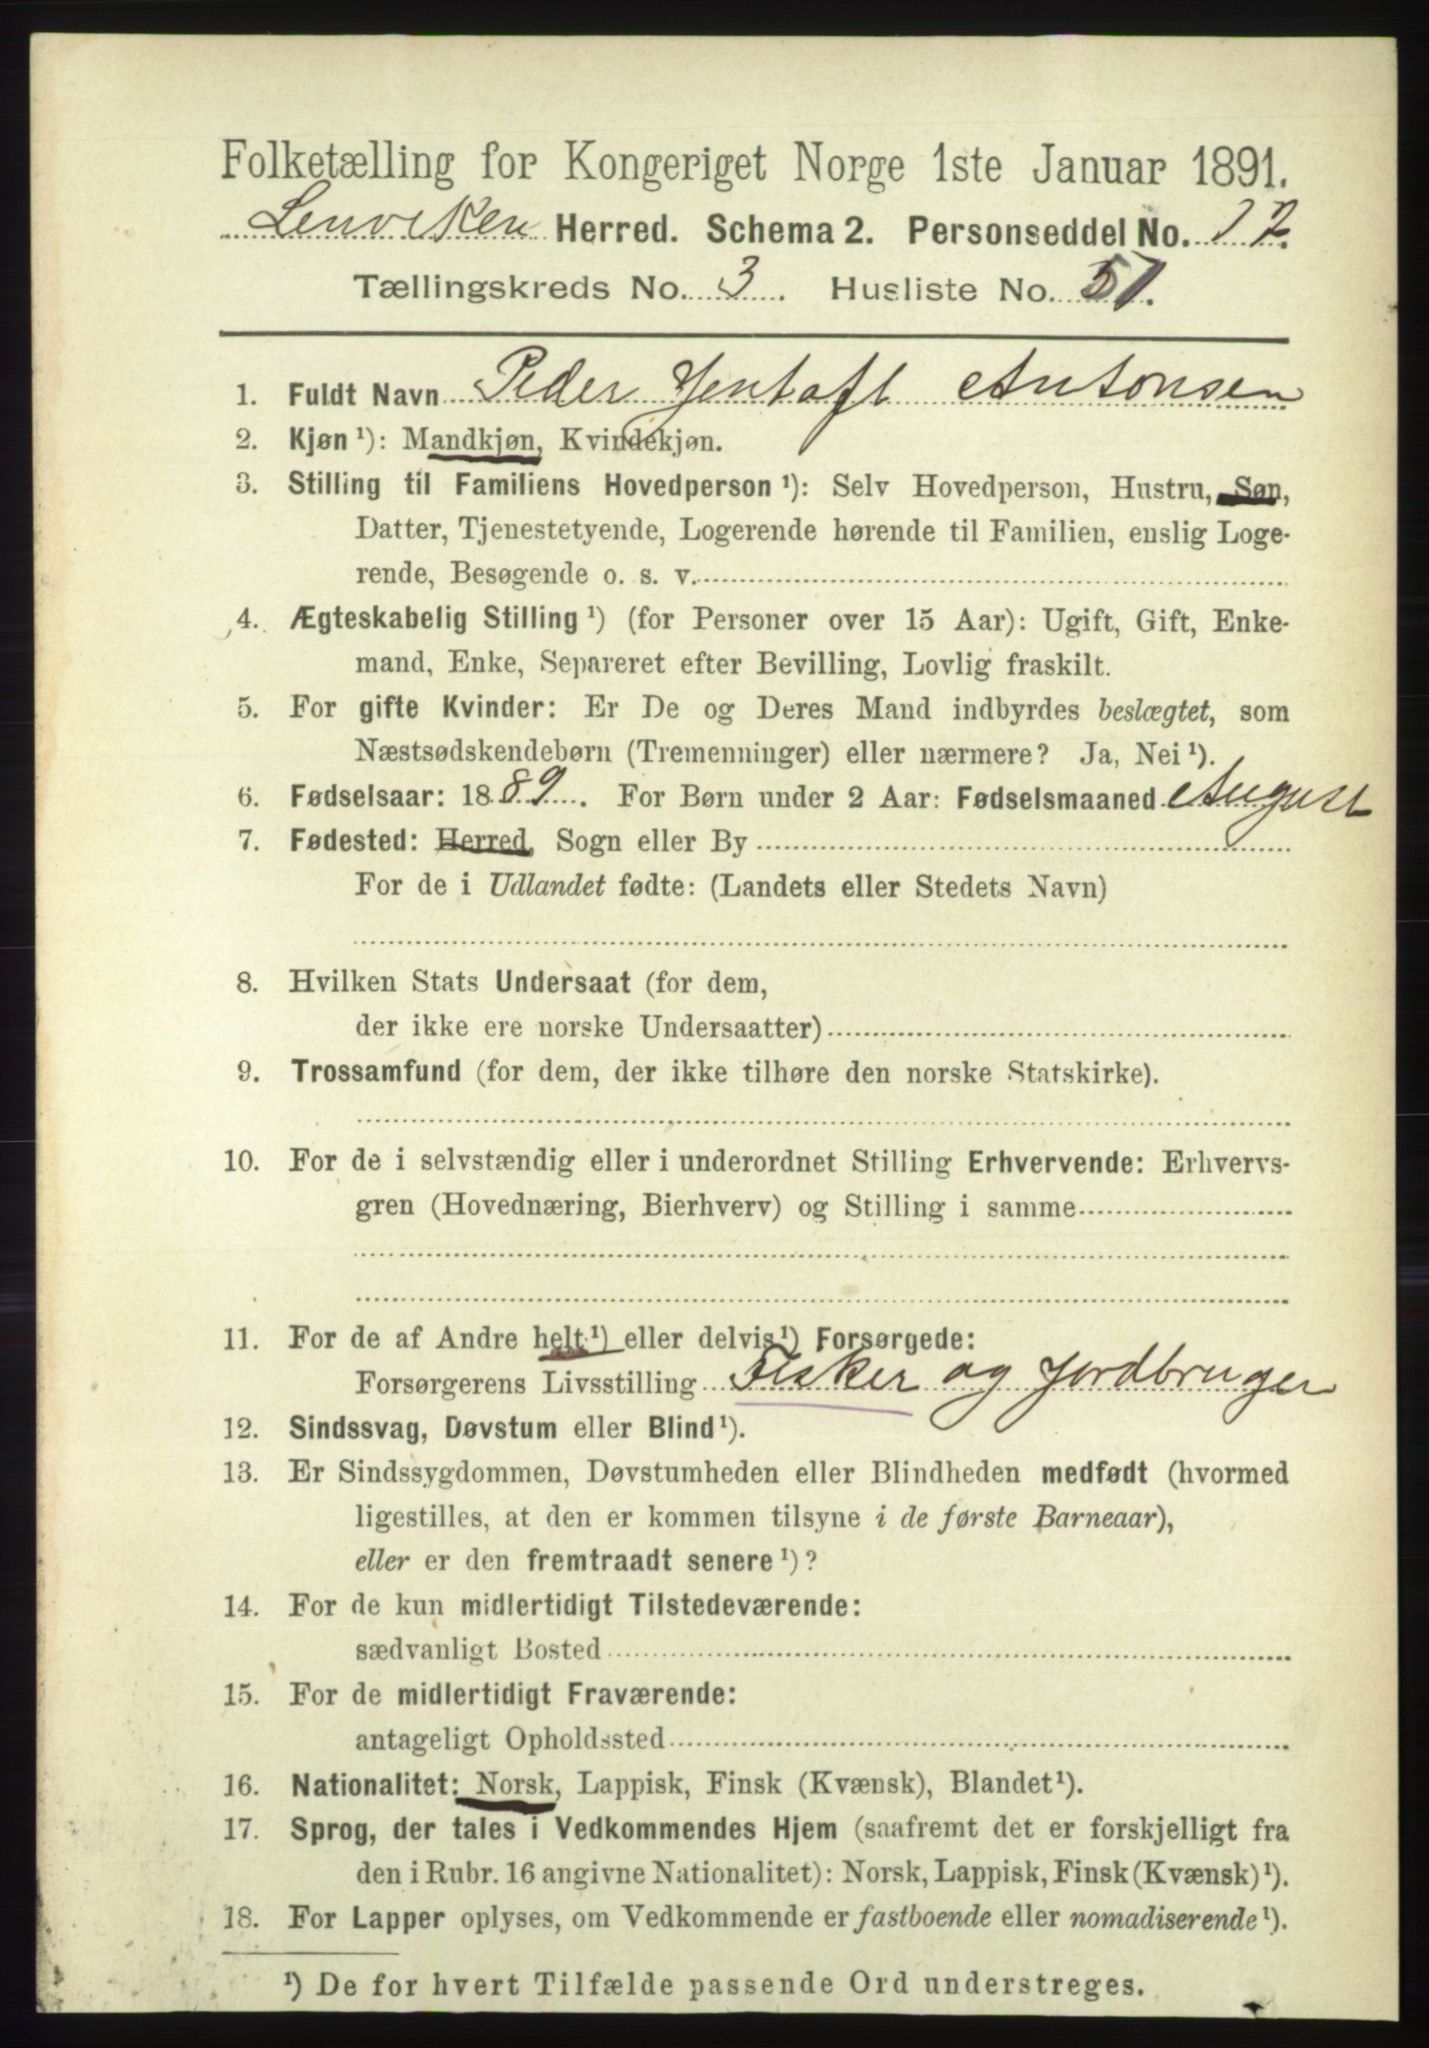 Folketælling for Kongeriget Norge 1ste Januar 1891.
Lenviken Herred. Schema 2. Personseddel No. 12.
Tællingskreds No. 3. Husliste No. 57.
1. Fuldt Navn Peder Jentoft Antonsen
2. Kjøn ¹): Mandkjøn, Kvindekjøn.
3. Stilling til Familiens Hovedperson ¹): Selv Hovedperson, Hustru, Søn,
Datter, Tjenestetyende, Logerende hørende til Familien, enslig Loge-
rende, Besøgende o. s. v.
4. Ægteskabelig Stilling ¹) (for Personer over 15 Aar): Ugift, Gift, Enke-
mand, Enke, Separeret efter Bevilling, Lovlig fraskilt.
5. For gifte Kvinder: Er De og Deres Mand indbyrdes beslægtet, som
Næstsødskendebørn (Tremenninger) eller nærmere? Ja, Nei ¹).
6. Fødselsaar: 1889. For Børn under 2 Aar: Fødselsmaaned August
7. Fødested: Herred, Sogn eller By
For de i Udlandet fødte: (Landets eller Stedets Navn)
8. Hvilken Stats Undersaat (for dem,
der ikke ere norske Undersaatter)
9. Trossamfund (for dem, der ikke tilhøre den norske Statskirke).
10. For de i selvstændig eller i underordnet Stilling Erhvervende: Erhvervs-
gren (Hovednæring, Bierhverv) og Stilling i samme
11. For de af Andre helt ¹) eller delvis ¹) Forsørgede:
Forsørgerens Livsstilling Fisker og Jordbruger
12. Sindssvag, Døvstum eller Blind ¹).
13. Er Sindssygdommen, Døvstumheden eller Blindheden medfødt (hvormed
ligestilles, at den er kommen tilsyne i de første Barneaar),
eller er den fremtraadt senere ¹)?
14. For de kun midlertidigt Tilstedeværende:
sædvanligt Bosted
15. For de midlertidigt Fraværende:
antageligt Opholdssted
16. Nationalitet: Norsk, Lappisk, Finsk (Kvænsk), Blandet ¹).
17. Sprog, der tales i Vedkommendes Hjem (saafremt det er forskjelligt fra
den i Rubr. 16 angivne Nationalitet): Norsk, Lappisk, Finsk (Kvænsk) ¹).
18. For Lapper oplyses, om Vedkommende er fastboende eller nomadiserende ¹).
¹) De for hvert Tilfælde passende Ord understreges.